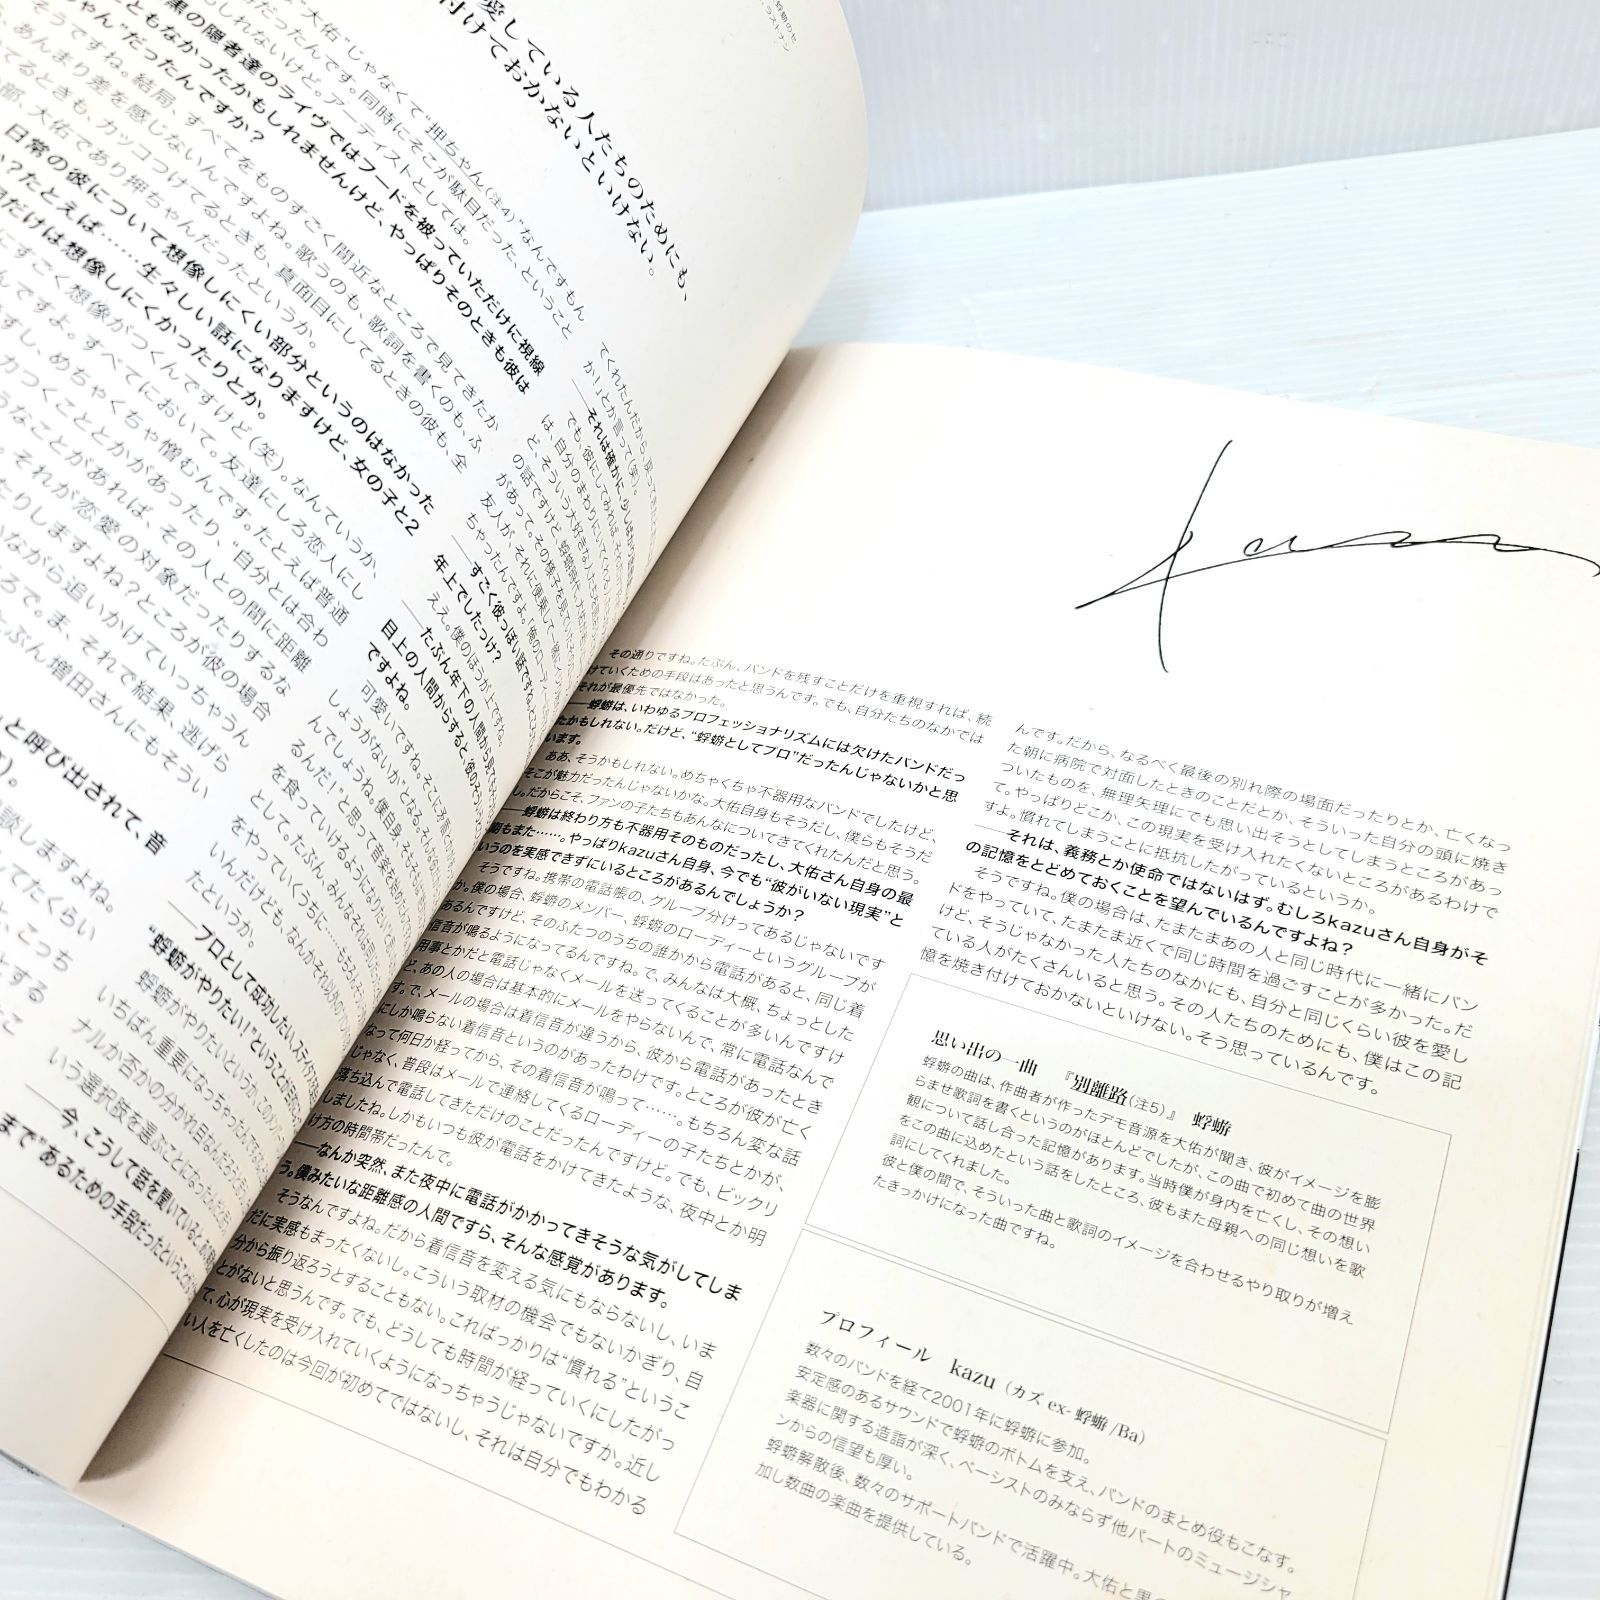 愛している人たちのためにも、
付けておかないといけない。
大佑"じゃなくて"押ちゃん(注4)"なんですもん
だったんです。同時にそこが駄目だった、ということ
しれないけど。アーティストとしては。
黒の隠者達のライヴではフードを被っていただけに視線
ともなかったかもしれませんけど、やっぱりそのときも彼は
ちゃん"だったんですか?
そうですね。結局、すべてをものすごく間近なところで見てきたか
あんまり差を感じないんですよね。歌うのも、歌詞を書くのも、ふ
てるときも、カッコつけてるときも、真面目にしてるときの彼も、全
部、大佑であり押ちゃんだったというか。
日常の彼について想像しにくい部分というのはなかった
か?たとえば……生々しい話になりますけど、女の子と2
だけは想像しにくかったりとか。
にすごく想像がつくんですけど(笑)。なんていうか、
んですよ。すべてにおいて。友達にしろ恋人にし
すし、めちゃくちゃ憎むんです。たとえば普通
カつくこととかがあったり、"自分とは合わ
うなことがあれば、その人との間に距離
たりしますよね?ところが彼の場合
。それが恋愛の対象だったりするな
いながら追いかけていっちゃうん
ころで。ま、それで結果、逃げら
たぶん増田さんにもそうい
と呼び出されて、音
談しますよね。
してたくらい
と、こっち
とする
てくれたんだから、戻ってき
か!」とか言って(笑)。
——それは確かに、少しば
でも、彼にしてみれば、それ
は、自分のまわりにいてくれ
ど、そういう大好きな人たち
の話ですけど、蜉蝣時代、
があって。その様子を見てい
友人が、それに便乗して一緒
ちゃったんですよ。「俺のローディー
——すごく彼っぽい話ですね
年上でしたっけ?
ええ。僕のほうが上ですね。
——たぶん年下の人間から見て
目上の人間からすると、彼の
ですよね。
可愛いですね。そこに才能と
しょうがないか"となる。そんな
んでしょうね。僕自身、そも
るんだ!」と思って音楽を始め
を食っていけるようになりたい
として。たぶん、みんなそれは同じ
をやっていくうちに……もちろん
いんだけども、なんかそれ以外の
たというか。
——プロとして成功したい、スタイ
"蜉蝣がやりたい!"ということが目的
蜉蝣がやりたいというか、このバン
いちばん重要になっちゃったんで
ナルか否かの分かれ目なんだろう
いう選択肢を選ぶことになったんだ
——今、こうして話を聞いていると、
まで"あるための手段だったということ
kazu
その通りですね。たぶん、バンドを残すことだけを重視すれば、続
けていくための手段はあったと思うんです。でも、自分たちのなかでは
それが最優先ではなかった。
——蜉蝣は、いわゆるプロフェッショナリズムには欠けたバンドだっ
たかもしれない。だけど、"蜉蝣としてプロ"だったんじゃないかと思
います。
ああ、そうかもしれない。めちゃくちゃ不器用なバンドでしたけど、
そこが魅力だったんじゃないかな。大佑自身もそうだし、僕らもそうだ
し。だからこそ、ファンの子たちもあんなについてきてくれたんだと思う。
——蜉蝣は終わり方も不器用そのものだったし、大佑さん自身の最
期もまた……。やっぱりkazuさん自身、今でも"彼がいない現実"と
いうのを実感できずにいるところがあるんでしょうか?
そうですね。携帯の電話帳の、グループ分けってあるじゃないです
か。僕の場合、蜉蝣のメンバー、蜉蝣のローディーというグループが
あるんですけど、そのふたつのうちの誰かから電話があると、同じ着
信音が鳴るようになってるんですね。で、みんなは大概、ちょっとした
用事とかだと電話じゃなくメールを送ってくることが多いんですけ
ど、あの人の場合は基本的にメールをやらないんで、常に電話なんで
す。で、メールの場合は着信音が違うから、彼から電話があったとき
にしか鳴らない着信音というのがあったわけです。ところが彼が亡く
なって何日か経ってから、その着信音が鳴って……。もちろん変な話
じゃなく、普段はメールで連絡してくるローディーの子たちとかが、
落ち込んで電話してきただけのことだったんですけど。でも、ビックリ
しましたね。しかもいつも彼が電話をかけてきたような、夜中とか明
け方の時間帯だったんで。
——なんか突然、また夜中に電話がかかってきそうな気がしてしま
う。僕みたいな距離感の人間ですら、そんな感覚があります。
そうなんですよね。だから着信音を変える気にもならないし、いま
だに実感もまったくないし。こういう取材の機会でもないかぎり、自
分から振り返ろうとすることもない。こればっかりは"慣れる"というこ
とがないと思うんです。でも、どうしても時間が経っていくにしたがっ
て、心が現実を受け入れていくようになっちゃうじゃないですか。近し
い人を亡くしたのは今回が初めてではないし、それは自分でもわかる
んです。だから、なるべく最後の別れ際の場面だったりとか、亡くなっ
た朝に病院で対面したときのことだとか、そういった自分の頭に焼き
ついたものを、無理矢理にでも思い出そうとしてしまうところがあっ
て。やっぱりどこか、この現実を受け入れたくないところがあるわけで
すよ。慣れてしまうことに抵抗したがっているというか。
——それは、義務とか使命ではないはず。むしろkazuさん自身がそ
の記憶をとどめておくことを望んでいるんですよね?
そうですね。僕の場合は、たまたまあの人と同じ時代に一緒にバン
ドをやっていて、たまたま近くで同じ時間を過ごすことが多かった。だ
けど、そうじゃなかった人たちのなかにも、自分と同じくらい彼を愛し
ている人がたくさんいると思う。その人たちのためにも、僕はこの記
憶を焼き付けておかないといけない。そう思っているんです。
思い出の一曲 『別離路(注5)』 蜉蝣
蜉蝣の曲は、作曲者が作ったデモ音源を大佑が聞き、彼がイメージを膨
らませ歌詞を書くというのがほとんどでしたが、この曲で初めて曲の世界
観について話し合った記憶があります。当時僕が身内を亡くし、その想い
をこの曲に込めたという話をしたところ、彼もまた母親への同じ想いを歌
詞にしてくれました。
彼と僕の間で、そういった曲と歌詞のイメージを合わせるやり取りが増え
たきっかけになった曲ですね。
プロフィール kazu (カズ ex-蜉蝣/Ba)
数々のバンドを経て2001年に蜉蝣に参加。
安定感のあるサウンドで蜉蝣のボトムを支え、バンドのまとめ役もこなす。
楽器に関する造詣が深く、ベーシストのみならず他パートのミュージシャ
ンからの信望も厚い。
蜉蝣解散後、数々のサポートバンドで活躍中。大佑と黒
加し数曲の楽曲を提供している。